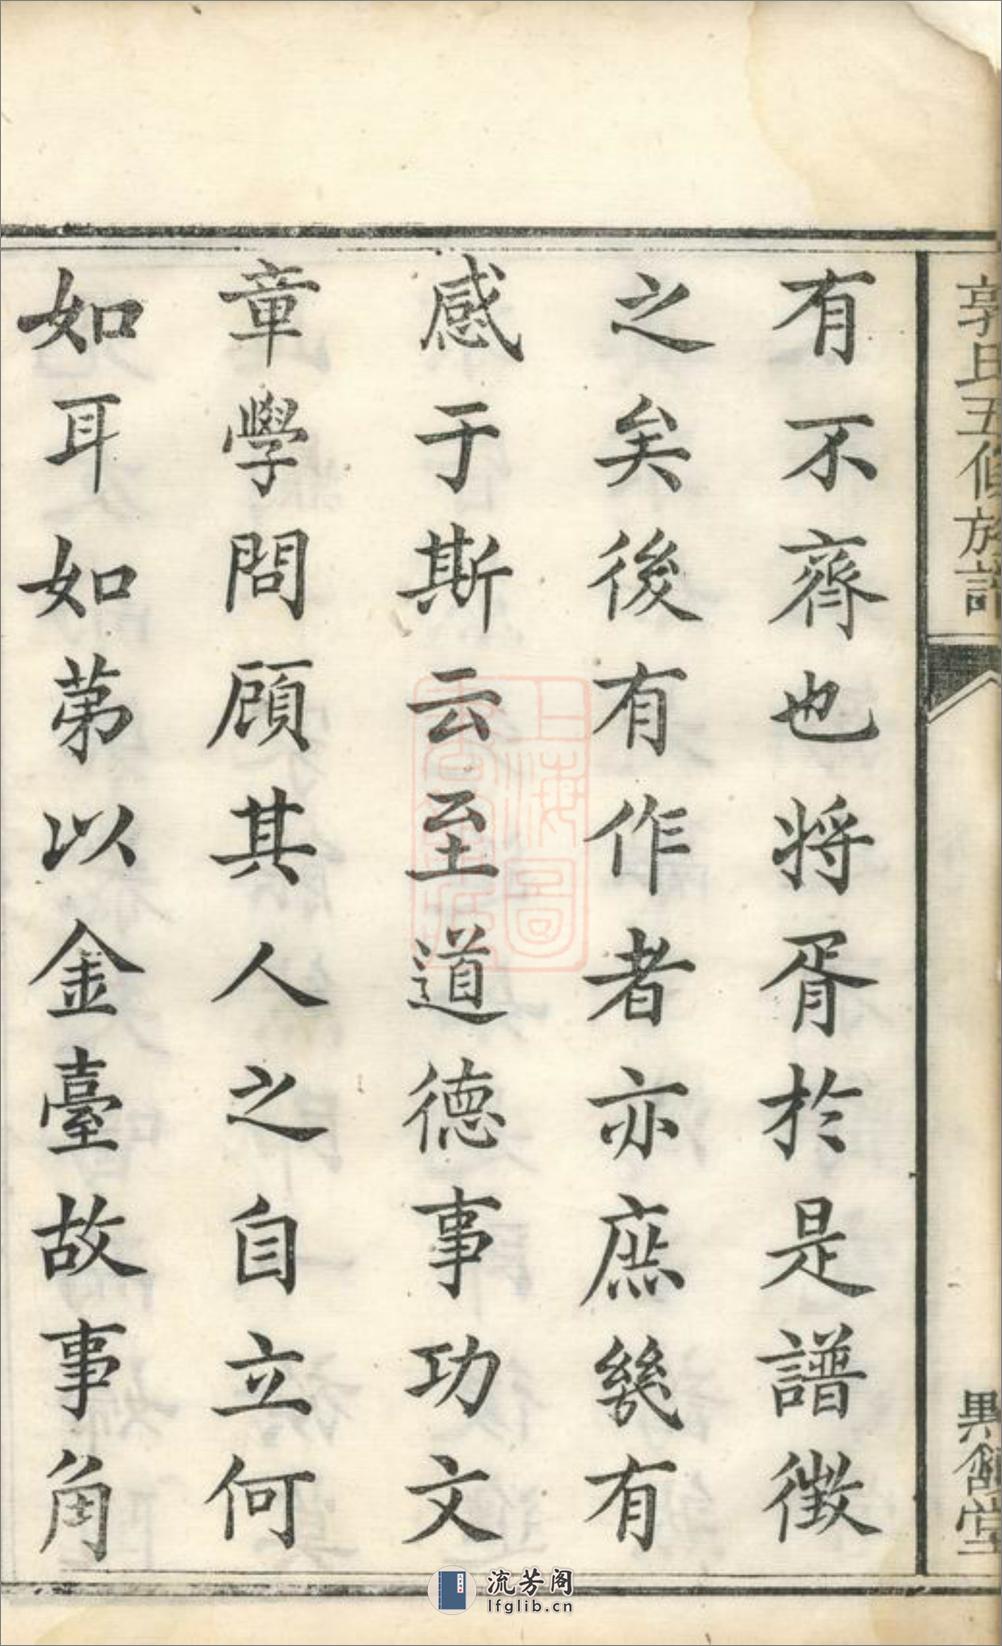 郭氏五修族譜
有不齊也將胥於是譜徴
之矣後有作者亦庶幾有
感于斯云至道德事功文
章學問顧其人之自立何
如耳如苐以金臺故事角
堂
上海圖
流芳阁
lfglib.cn